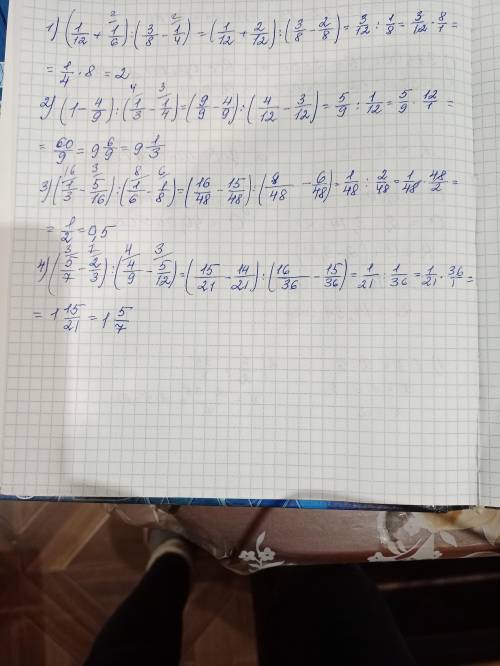 1) (1/12 + 1/6) : (3/8 - 1/4) = (1/12 + 2/12) : (3/8 - 2/8) = 3/12 : 1/8 = 3/12 · 8/1 =
= 1/4 · 8 = 2
2) (1 - 4/9) : (1/3 - 1/4) = (9/9 - 4/9) : (4/12 - 3/12) = 5/9 : 1/12 = 5/9 · 12/1 =
= 60/9 = 9 6/9 = 9 1/3
3) (1/3 - 5/16) : (1/6 - 1/8) = (16/48 - 15/48) : (8/48 - 6/48) = 1/48 : 2/48 = 1/48 · 48/2 =
= 1/2 = 0,5
4) (5/7 - 2/3) : (4/9 - 5/12) = (15/21 - 14/21) : (16/36 - 15/36) = 1/21 : 1/36 = 1/21 · 36/1 =
= 1 15/21 = 1 5/7